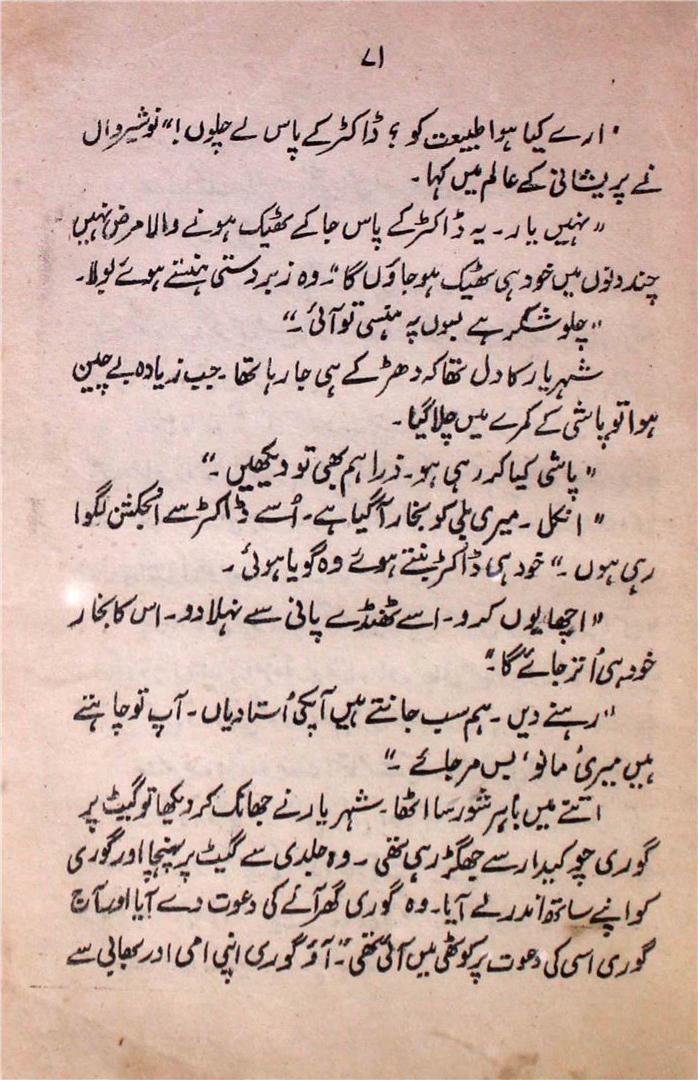 ۷۱
"ارے کیا ہوا طبیعت کو؟ ڈاکٹر کے پاس لے چلوں!" نوشیروال
نے پریشانی کے عالم میں کہا۔
"نہیں یار۔ یہ ڈاکٹر کے پاس جا کے ٹھیک ہونے والا مرض نہیں
چند دنوں میں خود ہی ٹھیک ہو جاؤں گا"۔ وہ زبردستی ہنستے ہوئے بولا۔
"چلو شکر ہے لبوں پہ ہنسی تو آئی۔"
شہریار کا دل تھا کہ دھڑکے ہی جا رہا تھا۔ جب زیادہ بے چین
ہوا تو پاشی کے کمرے میں چلا گیا۔
"پاشی کیا کر رہی ہو۔ ذرا ہم بھی تو دیکھیں۔"
"انکل۔ میری بلی کو بخار آ گیا ہے۔ اُسے ڈاکٹر سے انجکشن لگوا
رہی ہوں۔" خود ہی ڈاکٹر بنتے ہوئے وہ گویا ہوئی۔
"اچھا یوں کرو۔ اسے ٹھنڈے پانی سے نہلا دو۔ اس کا بخار
خود ہی اُتر جائے گا۔"
"رہنے دیں۔ ہم سب جانتے ہیں آپکی اُستادیاں۔ آپ تو چاہتے
ہیں میری مانو، بس مر جائے۔"
اتنے میں باہر شور سا اٹھا۔ شہریار نے جھانک کر دیکھا تو گیٹ پر
گوری چوکیدار سے جھگڑ رہی تھی۔ وہ جلدی سے گیٹ پر پہنچا اور گوری
کو اپنے ساتھ اندر لے آیا۔ وہ گوری گھر آنے کی دعوت دے آیا اور آج
گوری اسی کی دعوت پر کوٹھی میں آئی تھی"۔ آؤ گوری اپنی امی اور بھابی سے